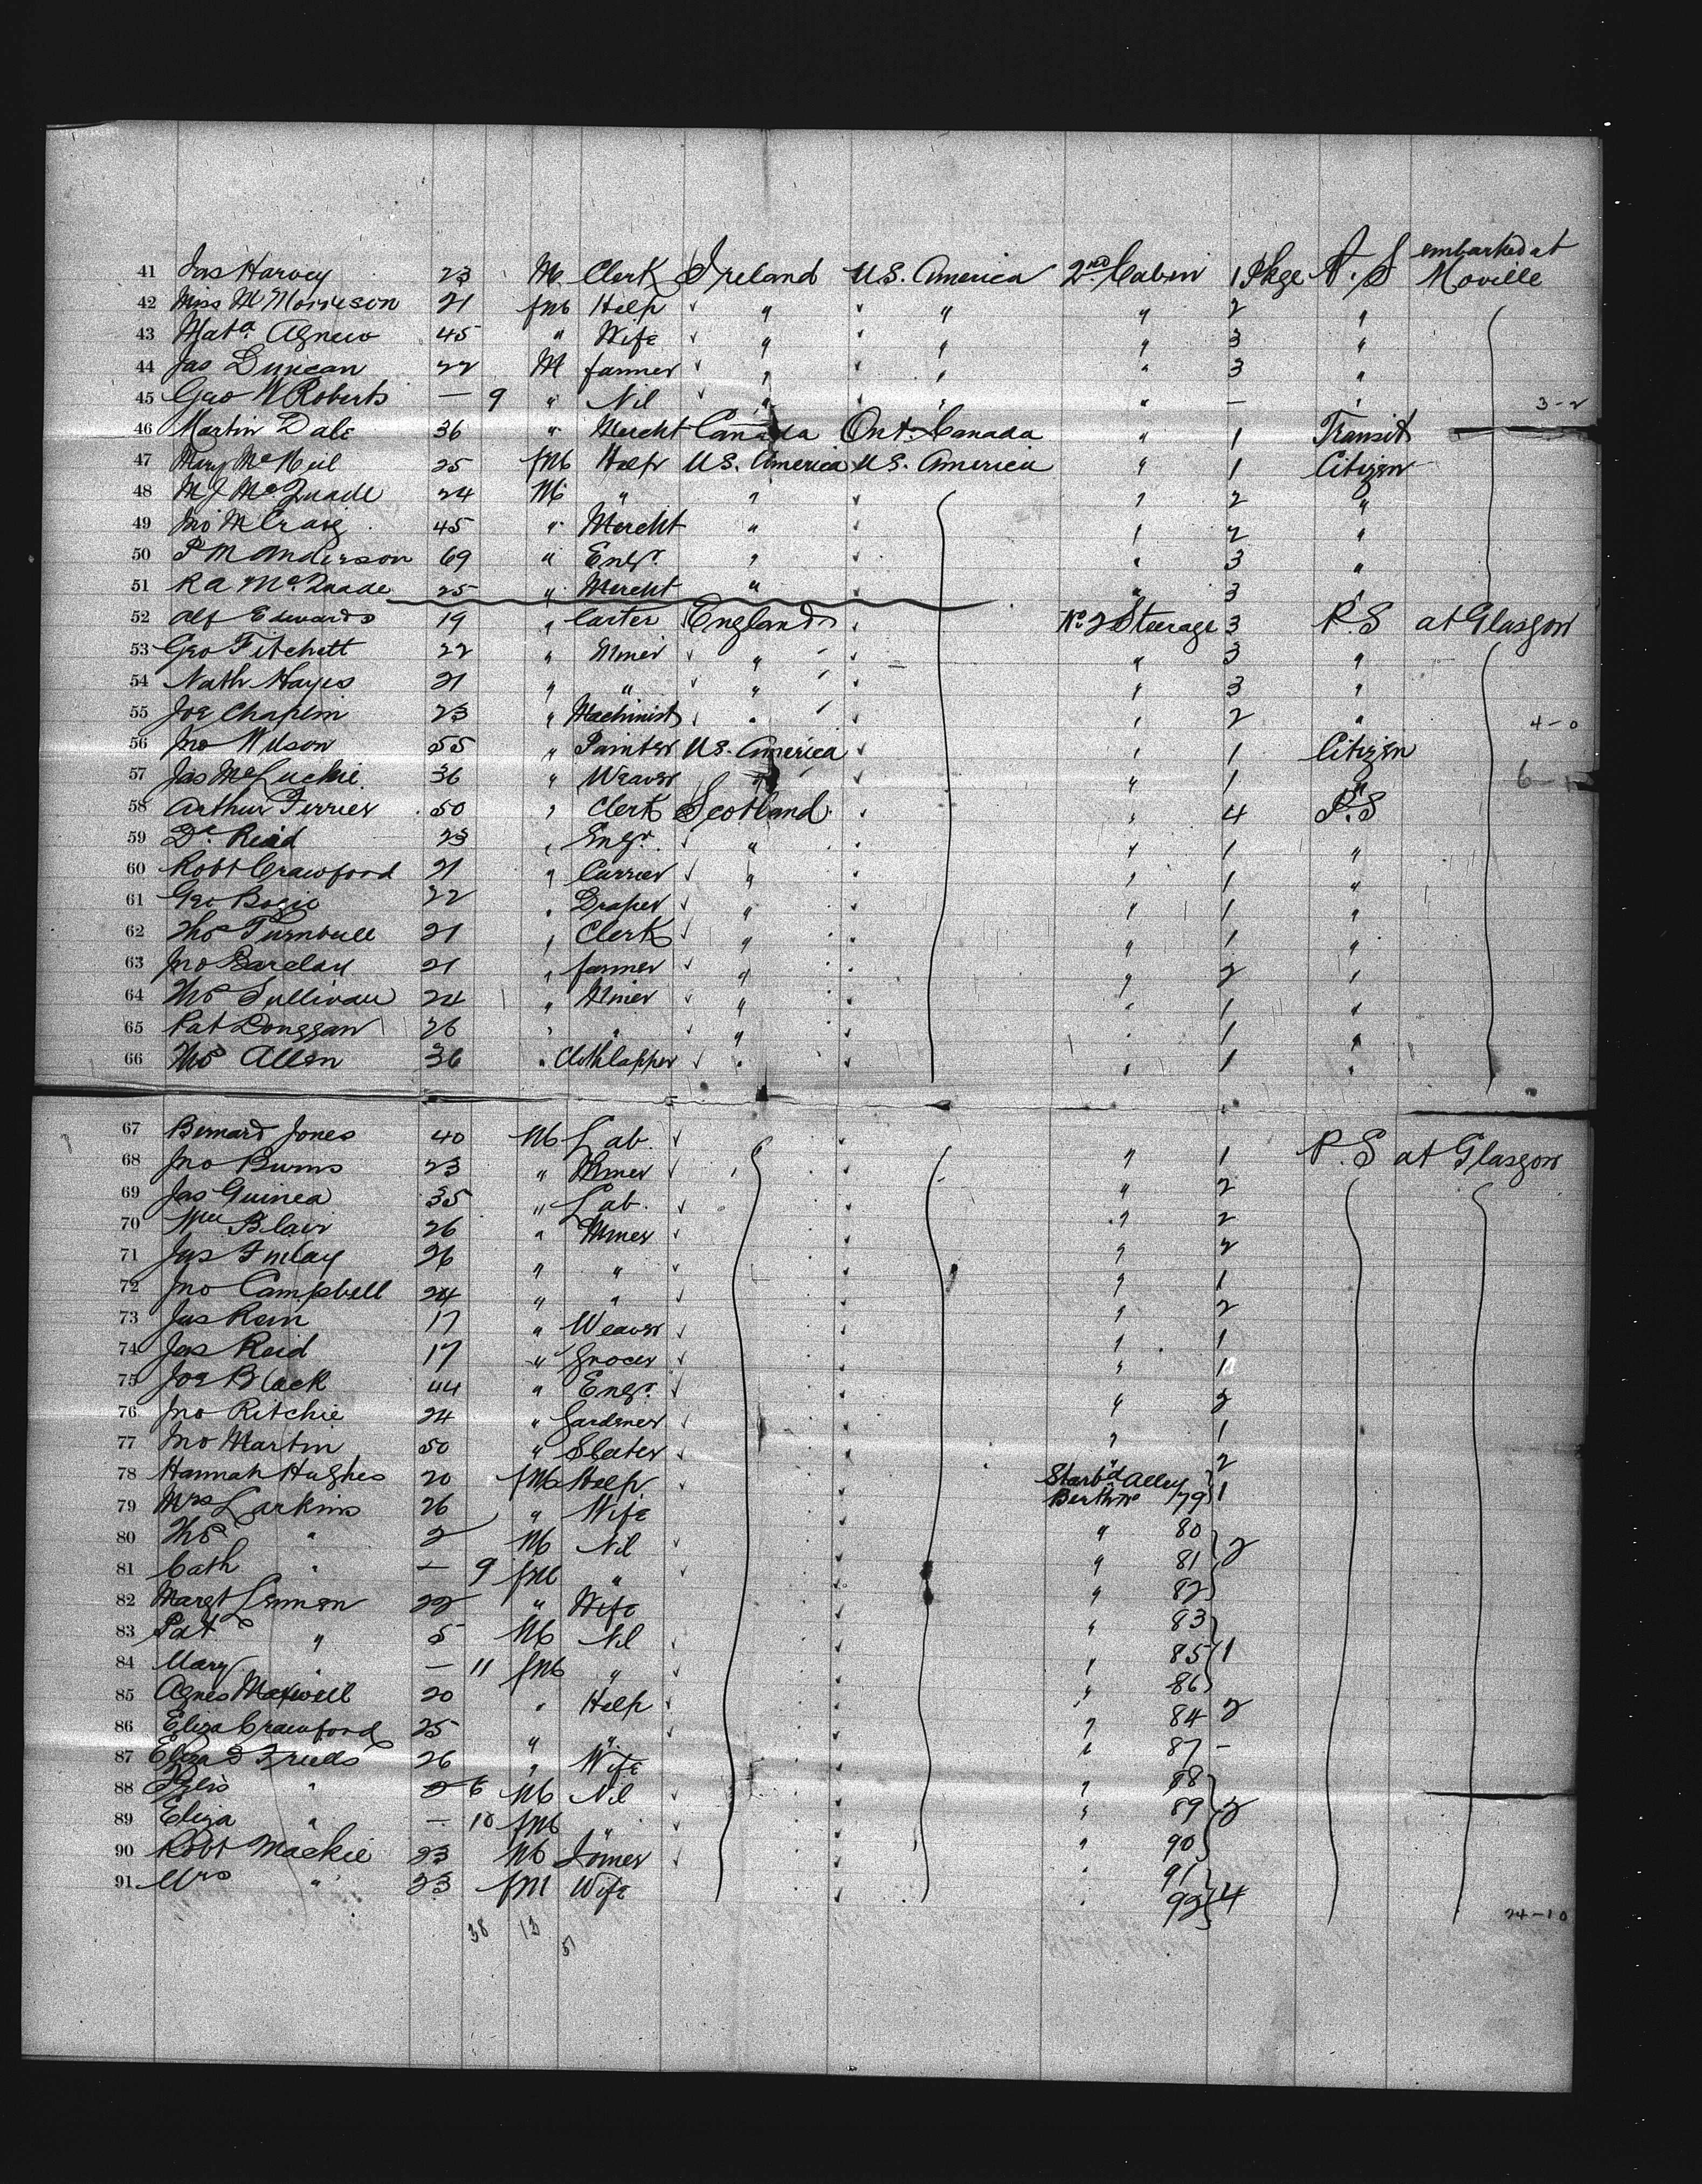 41 Jas Harvey 23 M Clerk Ireland U.S. America 2nd Cabin 1 Pkge P.S embarked at Moville
42 Miss M Morrison 21 fM Help " " " 2 "
43 Mata Agnew 45 " Wife " " " 3 "
44 Jas Duncan 22 M farmer " " " 3 "
45 Geo W Roberts — 9 " Nil " " " — " 3-2
46 Martin Dale 36 " Mercht Canada Ont. Canada " 1 Transit
47 Mary McNeil 25 fM Help U.S. America U.S. America " 1 Citizen
48 McQuade 24 M " " " 2 "
49 Jno McCraig 45 " Mercht " " 2 "
50 P M Anderson 69 " Engr. " " 3 "
51 R A McQuade 25 " Mercht " " 3 "
52 Alf Edwards 19 " Carter England No 2 Steerage 3 P.S at Glasgow
53 Geo Fitchett 22 " Miner " " 3 "
54 Nath Hayes 21 " " " " 3 "
55 Joe Chaplin 23 " Machinist " " 2 " 4-0
56 Jno Wilson 55 " Painter U.S. America " 1 Citizen
57 Jas McLuckie 36 " Weaver " " 1 " 6-
58 Arthur Ferrier 50 " Clerk Scotland " 4 P.S
59 Dd Reid 23 " Engr. " " 1 "
60 Robt Crawford 21 " Carrier " " 1 "
61 Geo Bogie 22 " Draper " " 1 "
62 Thos Turnbull 21 " Clerk " " 1 "
63 Jno Barclay 21 " farmer " " 2 "
64 Thos Sullivan 24 " Miner " " 1 "
65 Pat Donggan 26 " " " " 1 "
66 Thos Allen 36 " Clothlapper " " 1 "
67 Bernard Jones 40 M Lab. " 1 P.S at Glasgow
68 Jno Burns 23 " Miner " 2
69 Jas Guinea 35 " Lab. " 2
70 Wm Blair 26 " Miner " 2
71 Jas Finlay 26 " " " 1
72 Jno Campbell 24 " " " 2
73 Jas Rein 17 " Weaver " 1
74 Jas Reid 17 " Grocer " 1
75 Joe Black 44 " Engr. " 2
76 Jno Ritchie 24 " Gardener " 1
77 Jno Martin 50 " Slater " 2
78 Hannah Hughes 20 fM Help Starbd Alley Berth No 79 1
79 Mrs Larkins 26 " Wife " 80
80 Thos " 2 M Nil " 81 2
81 Cath " — 9 fM " " 82
82 Margt Lennen 22 " Wife " 83
83 Pat " 5 M Nil " 85 1
84 Mary " — 11 fM " " 86
85 Agnes Maxwell 20 " Help " 84 2
86 Eliza Crawford 25 " " " 87 —
87 Eliza 26 " Wife " 88
88 " 2 6 M Nil " 89 2
89 Eliza " — 10 fM " " 90
90 Robt Mackie 23 M Joiner " 91
91 Mrs " 23 fM Wife " 92 4 24-10
38 13
51